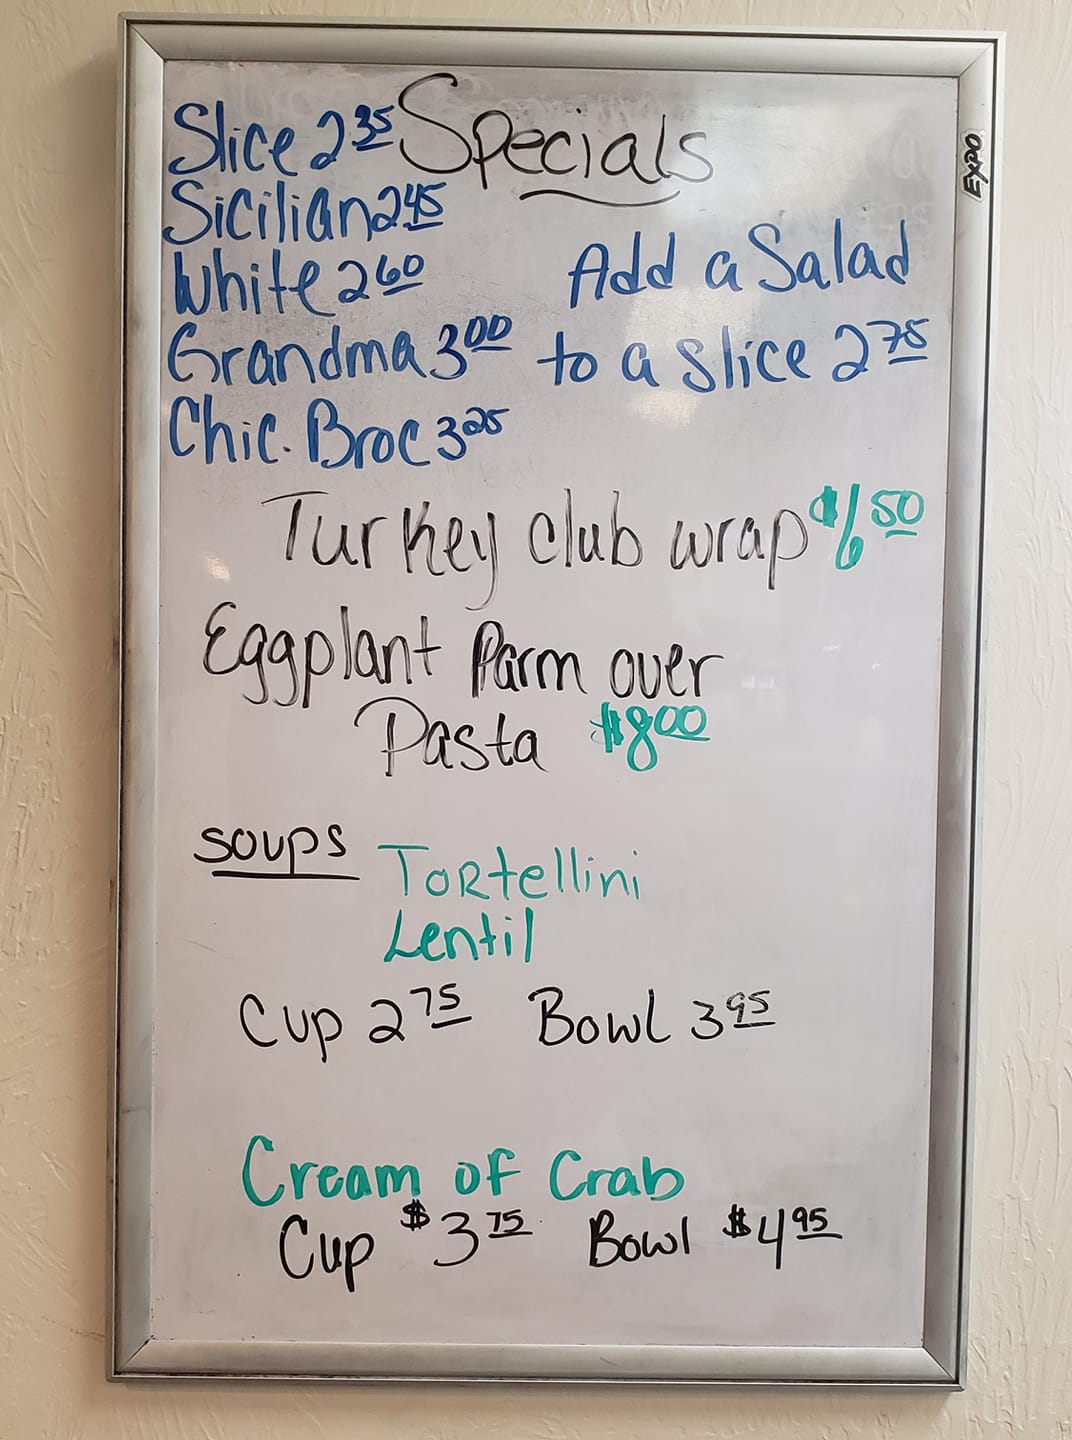 Specials
Slice 2 35
Sicilian 2 45
White 2 60
Grandma 3 00
Chic. Broc 3 25
Add a Salad
to a slice 2 75
Turkey club wrap $6 50
Eggplant Parm over
Pasta $8 00
Soups
Tortellini
Lentil
Cup 2 75 Bowl 3 95
Cream of Crab
Cup $3 75 Bowl $4 95
EXPO